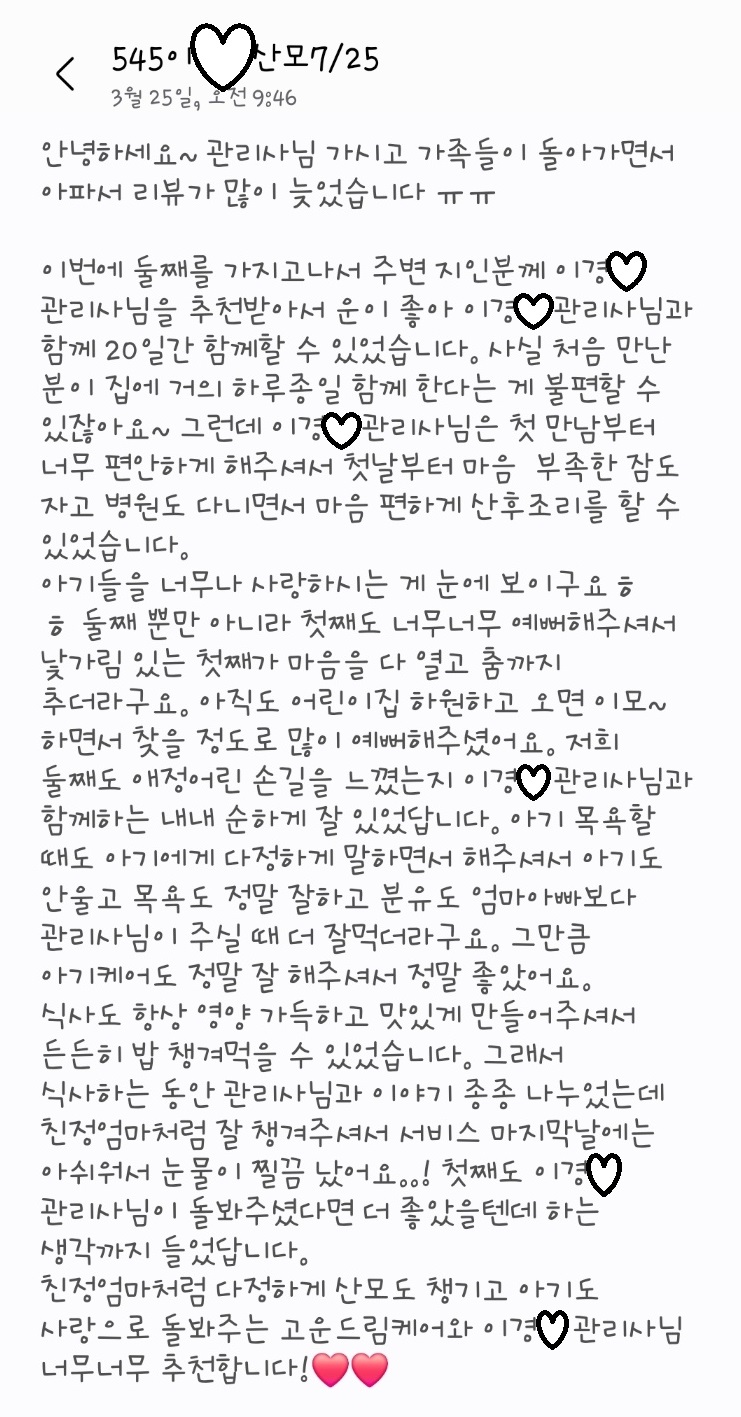 545이♡산모7/25
3월 25일, 오전 9:46
안녕하세요~ 관리사님 가시고 가족들이 돌아가면서
아파서 리뷰가 많이 늦었습니다 ㅠㅠ
이번에 둘째를 가지고나서 주변 지인분께 이경♡
관리사님을 추천받아서 운이 좋아 이경♡관리사님과
함께 20일간 함께할 수 있었습니다. 사실 처음 만난
분이 집에 거의 하루종일 함께 한다는 게 불편할 수
있잖아요~ 그런데 이경♡관리사님은 첫 만남부터
너무 편안하게 해주셔서 첫날부터 마음  부족한 잠도
자고 병원도 다니면서 마음 편하게 산후조리를 할 수
있었습니다.
아기들을 너무나 사랑하시는 게 눈에 보이구요ㅎ
ㅎ 둘째 뿐만 아니라 첫째도 너무너무 예뻐해주셔서
낯가림 있는 첫째가 마음을 다 열고 춤까지
추더라구요. 아직도 어린이집 하원하고 오면 이모~
하면서 찾을 정도로 많이 예뻐해주셨어요. 저희
둘째도 애정어린 손길을 느꼈는지 이경♡관리사님과
함께하는 내내 순하게 잘 있었답니다. 아기 목욕할
때도 아기에게 다정하게 말하면서 해주셔서 아기도
안울고 목욕도 정말 잘하고 분유도 엄마아빠보다
관리사님이 주실 때 더 잘먹더라구요. 그만큼
아기케어도 정말 잘 해주셔서 정말 좋았어요.
식사도 항상 영양 가득하고 맛있게 만들어주셔서
든든히 밥 챙겨먹을 수 있었습니다. 그래서
식사하는 동안 관리사님과 이야기 종종 나누었는데
친정엄마처럼 잘 챙겨주셔서 서비스 마지막날에는
아쉬워서 눈물이 찔끔 났어요..! 첫째도 이경♡
관리사님이 돌봐주셨다면 더 좋았을텐데 하는
생각까지 들었답니다.
친정엄마처럼 다정하게 산모도 챙기고 아기도
사랑으로 돌봐주는 고운드림케어와 이경♡관리사님
너무너무 추천합니다!❤️❤️